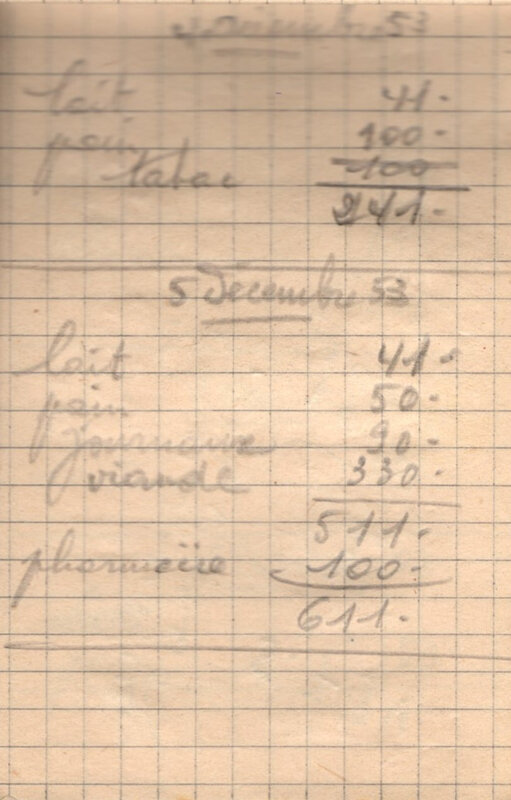 53
lait 41.-
pain 100.-
tabac 100
241.-
5 Décembre 53
lait 41.-
pain 50.-
journaux 90.-
viande 330.-
511.-
pharmacie 100.-
611.-